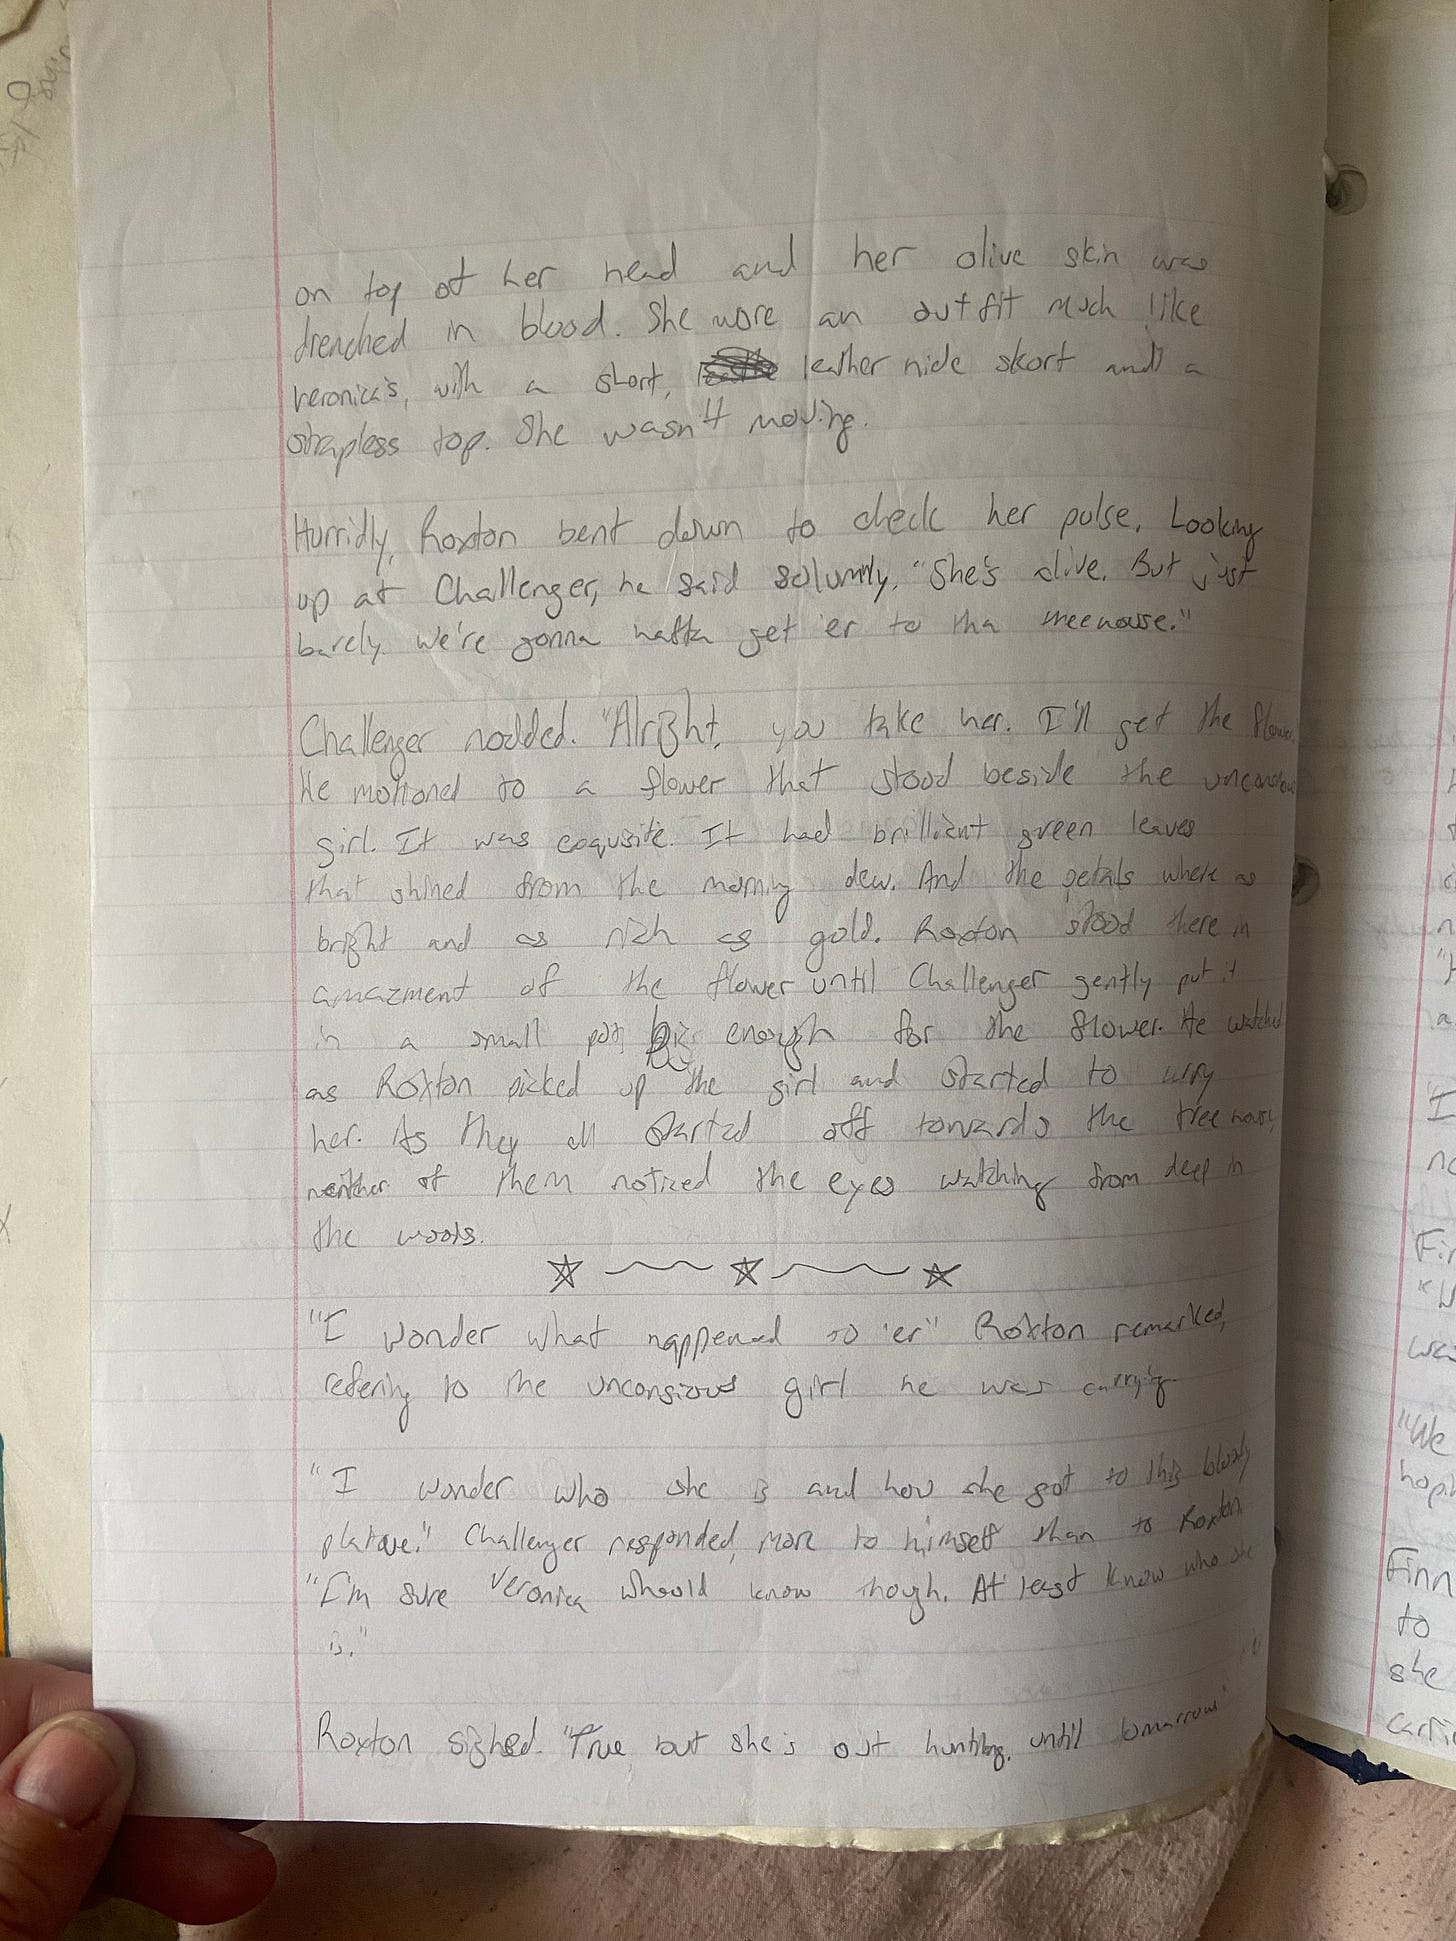 on top of her head and her olive skin was
drenched in blood. She wore an outfit much like
veronica's, with a short, leather hide skort and a
strapless top. She wasn't moving.
Hurridly, Roxton bent down to check her pulse. Looking
up at Challenger, he said solumnly, "She's alive. But just
barely. We're gonna hafta get 'er to tha treehouse."
Challenger nodded. "Alright, you take her. I'll get the flower.
He motioned to a flower that stood beside the
girl. It was exquisite. It had brilliant green leaves
that shined from the morning dew. And the petals where as
bright and as rich as gold. Roxton stood there in
amazment of the flower until Challenger gently put it
in a small pot, big enough for the flower. He watched
as Roxton picked up the girl and started to
her. As they all started off towards the treehouse,
neither of them noticed the eyes watching from deep in
the woods.
"I wonder what happened to 'er" Roxton remarked,
refering to the unconsious girl he was carrying
"I wonder who she is and how she got to this bloody
platue." Challenger responded, more to himself than to Roxton
"I'm sure Veronica whould know though. At least know who she
is."
Roxton sighed. "True, but she's out hunting, until tomarrow"
Fir
"We
hopi
Finn
to
she